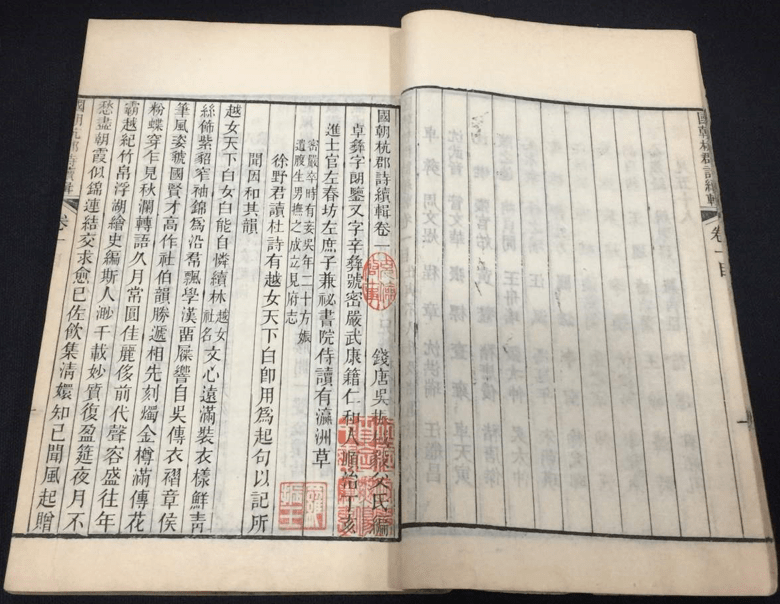 國朝杭郡詩續輯 卷一目
國朝杭郡詩續輯卷一
錢唐吳 氏編
卓彝字朗鑒又字辛彝號密嚴武康籍仁和人順治丁亥
進士官左春坊左庶子兼祕書院侍讀有瀛洲草
密嚴辛時有妾吳年二十方娠
遺腹生男撫之成立見府志
徐野君讀杜詩有越女天下白卽用爲起句以記所
聞因和其韻
越女天下白女白能自憐續林越女社名文心遠滿裝衣樣鮮青
絲佈紫貂窄袖錦爲沿君飄學漢畱屧響自吳傳衣褶章侯
筆風姿虢國賢才高作社伯韻勝遞相先刻燭金樽滿傳花
粉蝶穿乍見秋瀾轉語久月常圓佳麗侈前代聲容盛往年
霸越紀竹帛浮湖繪史編斯人渺千載妙質復盈筵夜月不
愁盡朝霞似錦連結交求愈已佐飲集清嬛知已聞風起贈
國朝杭郡詩續輯 卷一